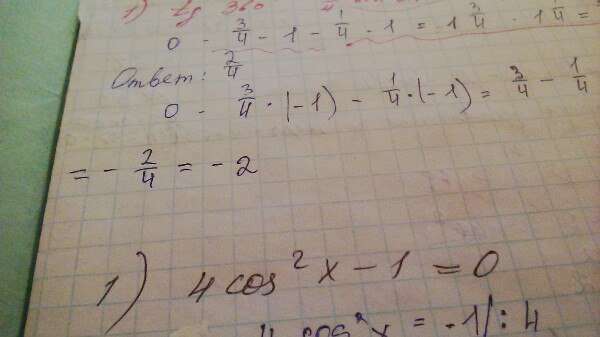 1) tg 360
0 - 3/4 - 1 - 1/4 · 1 = 1 3/4 · 1 1/4 =
Ответ: 2/4
0 - 3/4 · (-1) - 1/4 · (-1) = 3/4 - 1/4
= - 2/4 = - 2
1) 4 cos² x - 1 = 0
4 cos² x = -1 | : 4